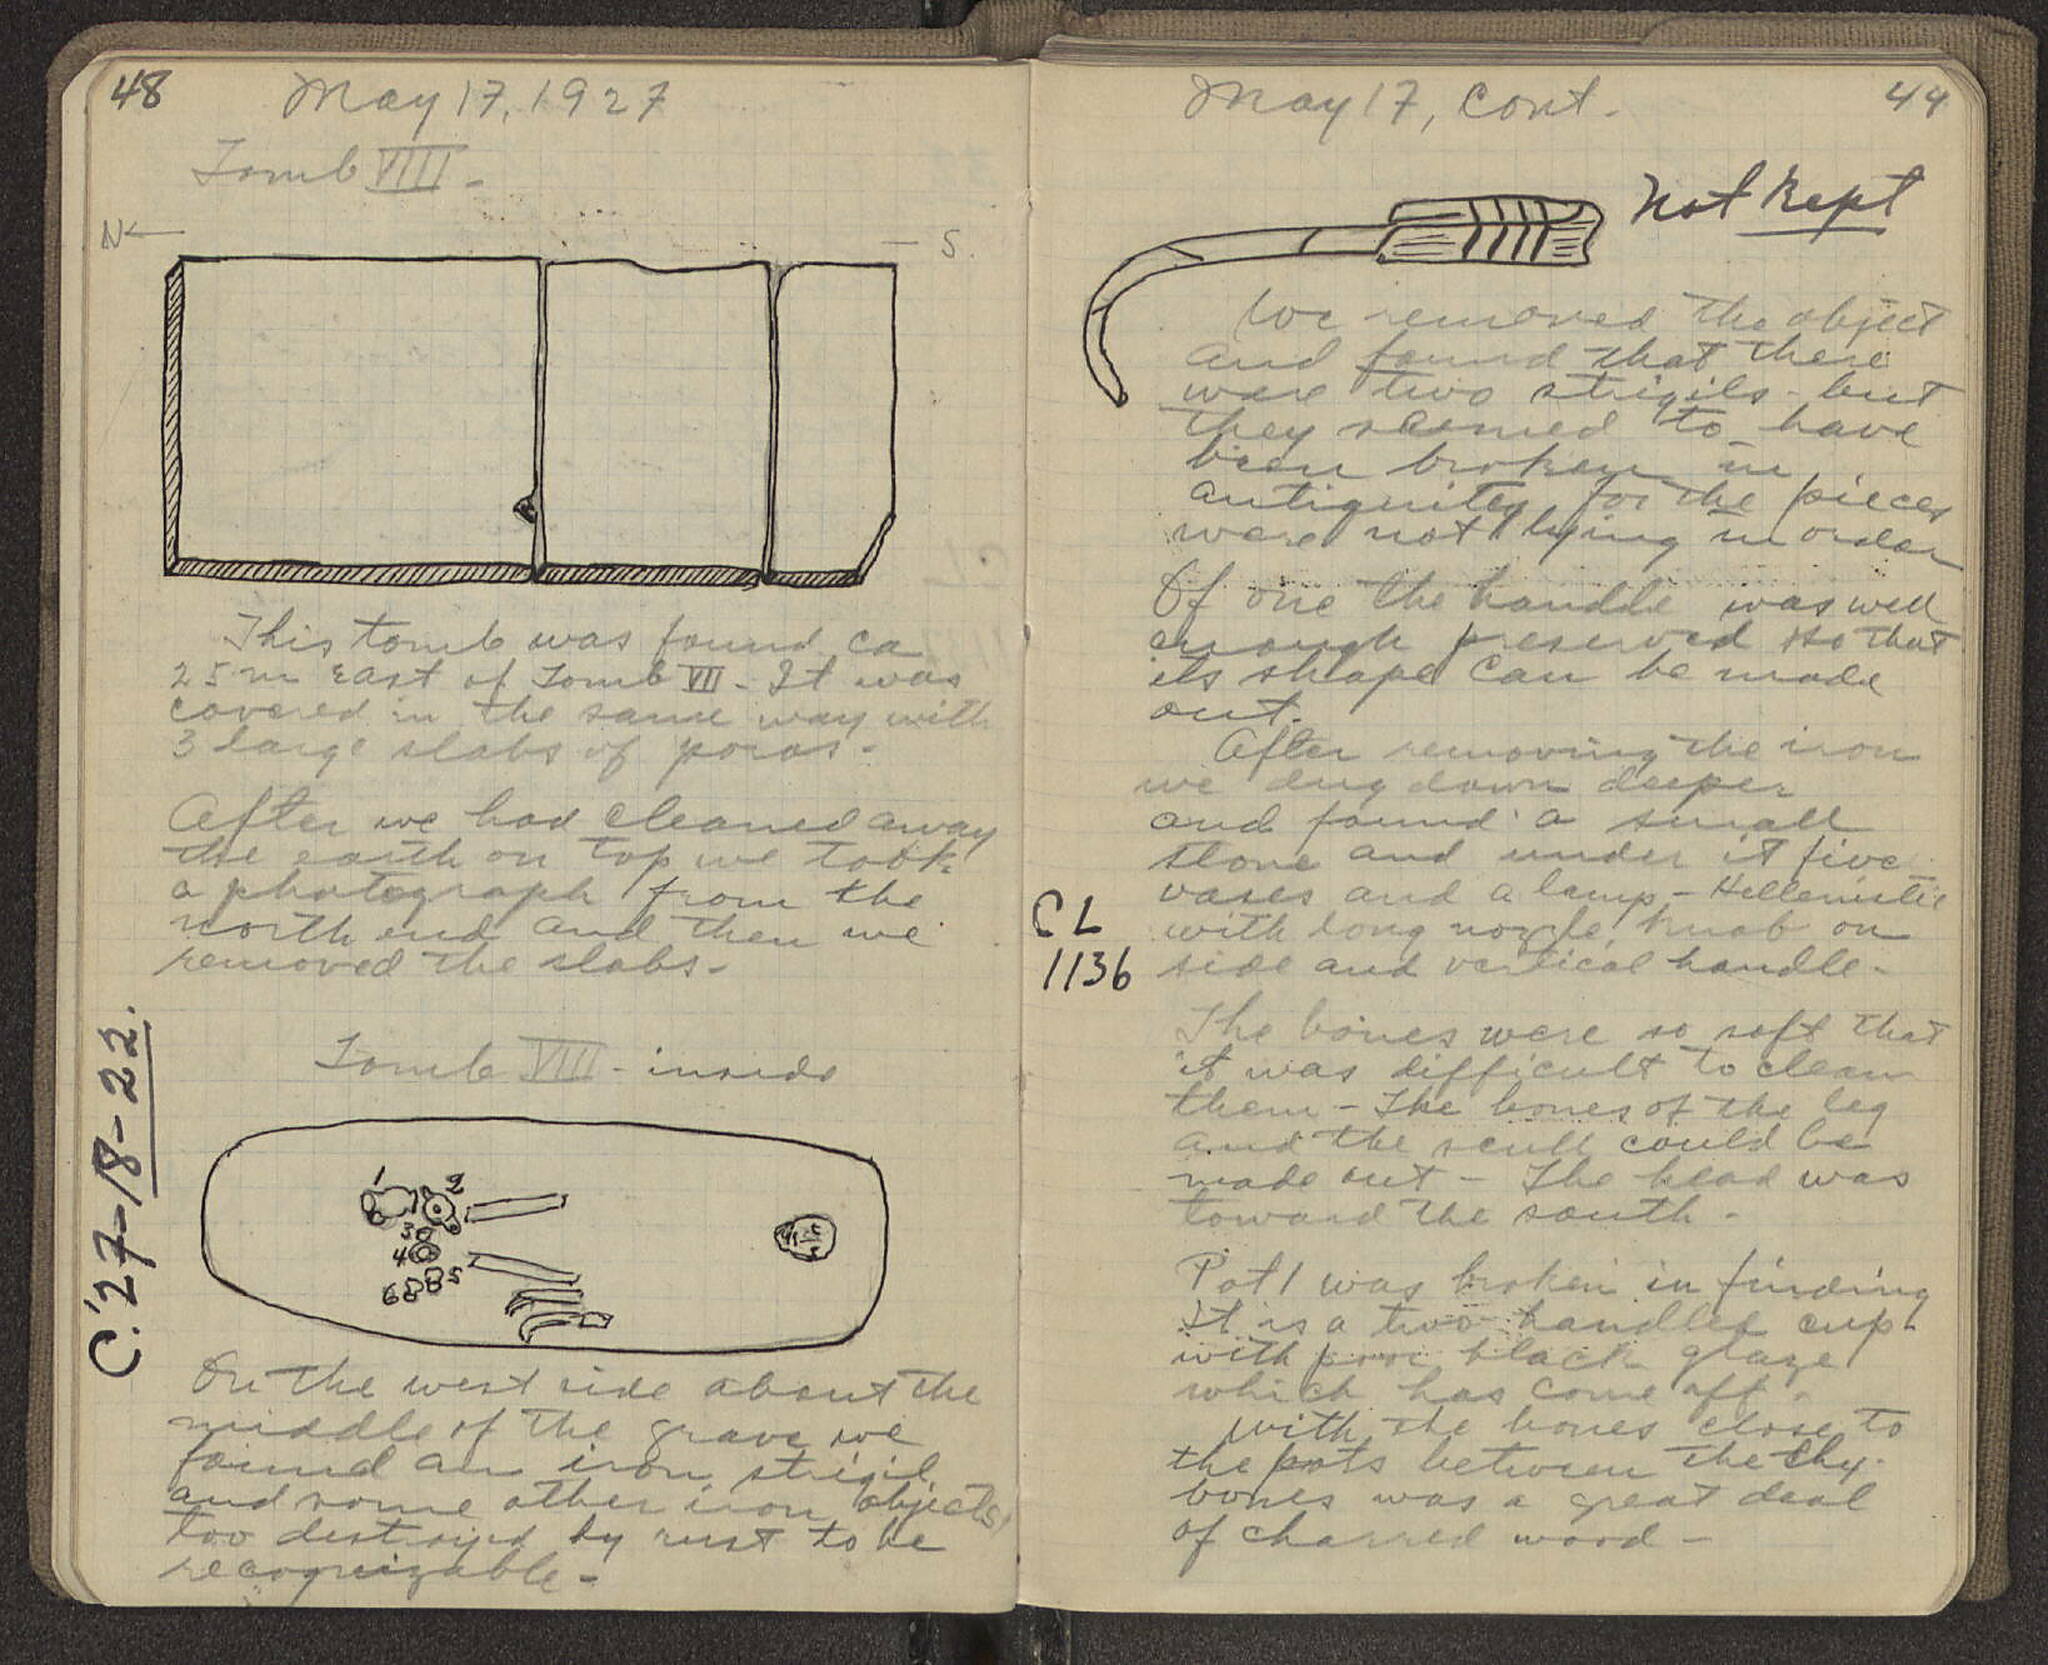 48
May 17, 1927
Tomb VIII -
N
S.
This tomb was found ca
25 m east of Tomb VII - It was
covered in the same way with
3 large slabs of poros -
After we had cleaned away
the earth on top we took
a photograph from the
north end and then we
removed the slabs -
C.'27-18-22.
Tomb VIII - inside
1
2
3
4
5
6
On the west side about the
middle of the grave we
found an iron strigil
and some other iron objects,
too destroyed by rust to be
recognizable -
May 17, cont.
49
Not Kept
We removed the object
and found that there
were two strigils - but
they seemed to have
been broken in
antiquity for the pieces
were not lying in order
Of one the handle was well
enough preserved so that
its shape can be made
out.
After removing the iron
we dug down deeper
and found a small
stone and under it five
vases and a lamp - Hellenistic
CL
1136
with long nozzle, knob on
side and vertical handle -
The bones were so soft that
it was difficult to clean
them - The bones of the leg
and the scull could be
made out - The head was
toward the south -
Pot 1 was broken in finding
It is a two handled cup
with poor black glaze
which has come off -
With the bones close to
the pots between the thy-
bones was a great deal
of charred wood -